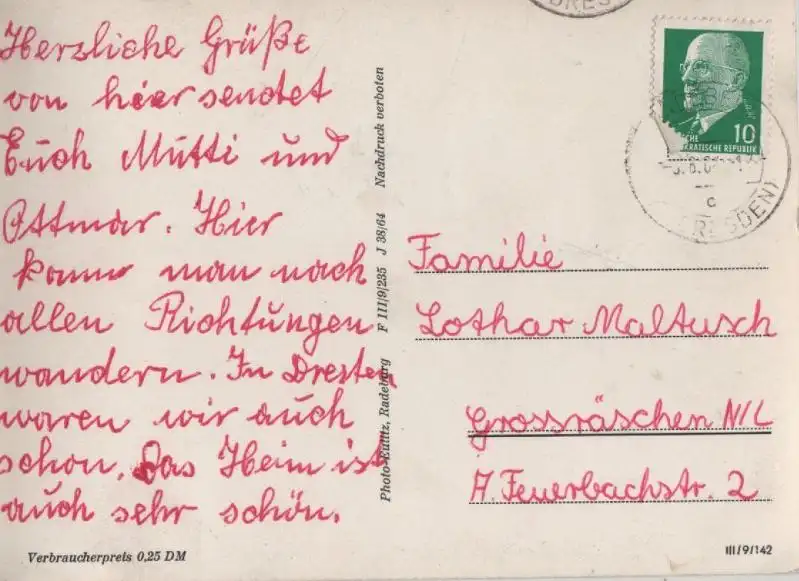 Herzliche Grüße
von hier sendet
Euch Mutti und
Ottmar. Hier
kann man nach
allen Richtungen
wandern. In Dresten
waren wir auch
schon. Das Heim ist
auch sehr schön.
Verbraucherpreis 0,25 DM
Photo-Eulitz, Radeburg F III/9/235 J 38/64 Nachdruck verboten
10
CHE
KRATISCHE REPUBLIK
c
RESDEN)
Familie
Lothar Maltusch
Grossräschen N/L
A. Feuerbachstr. 2
III/9/142